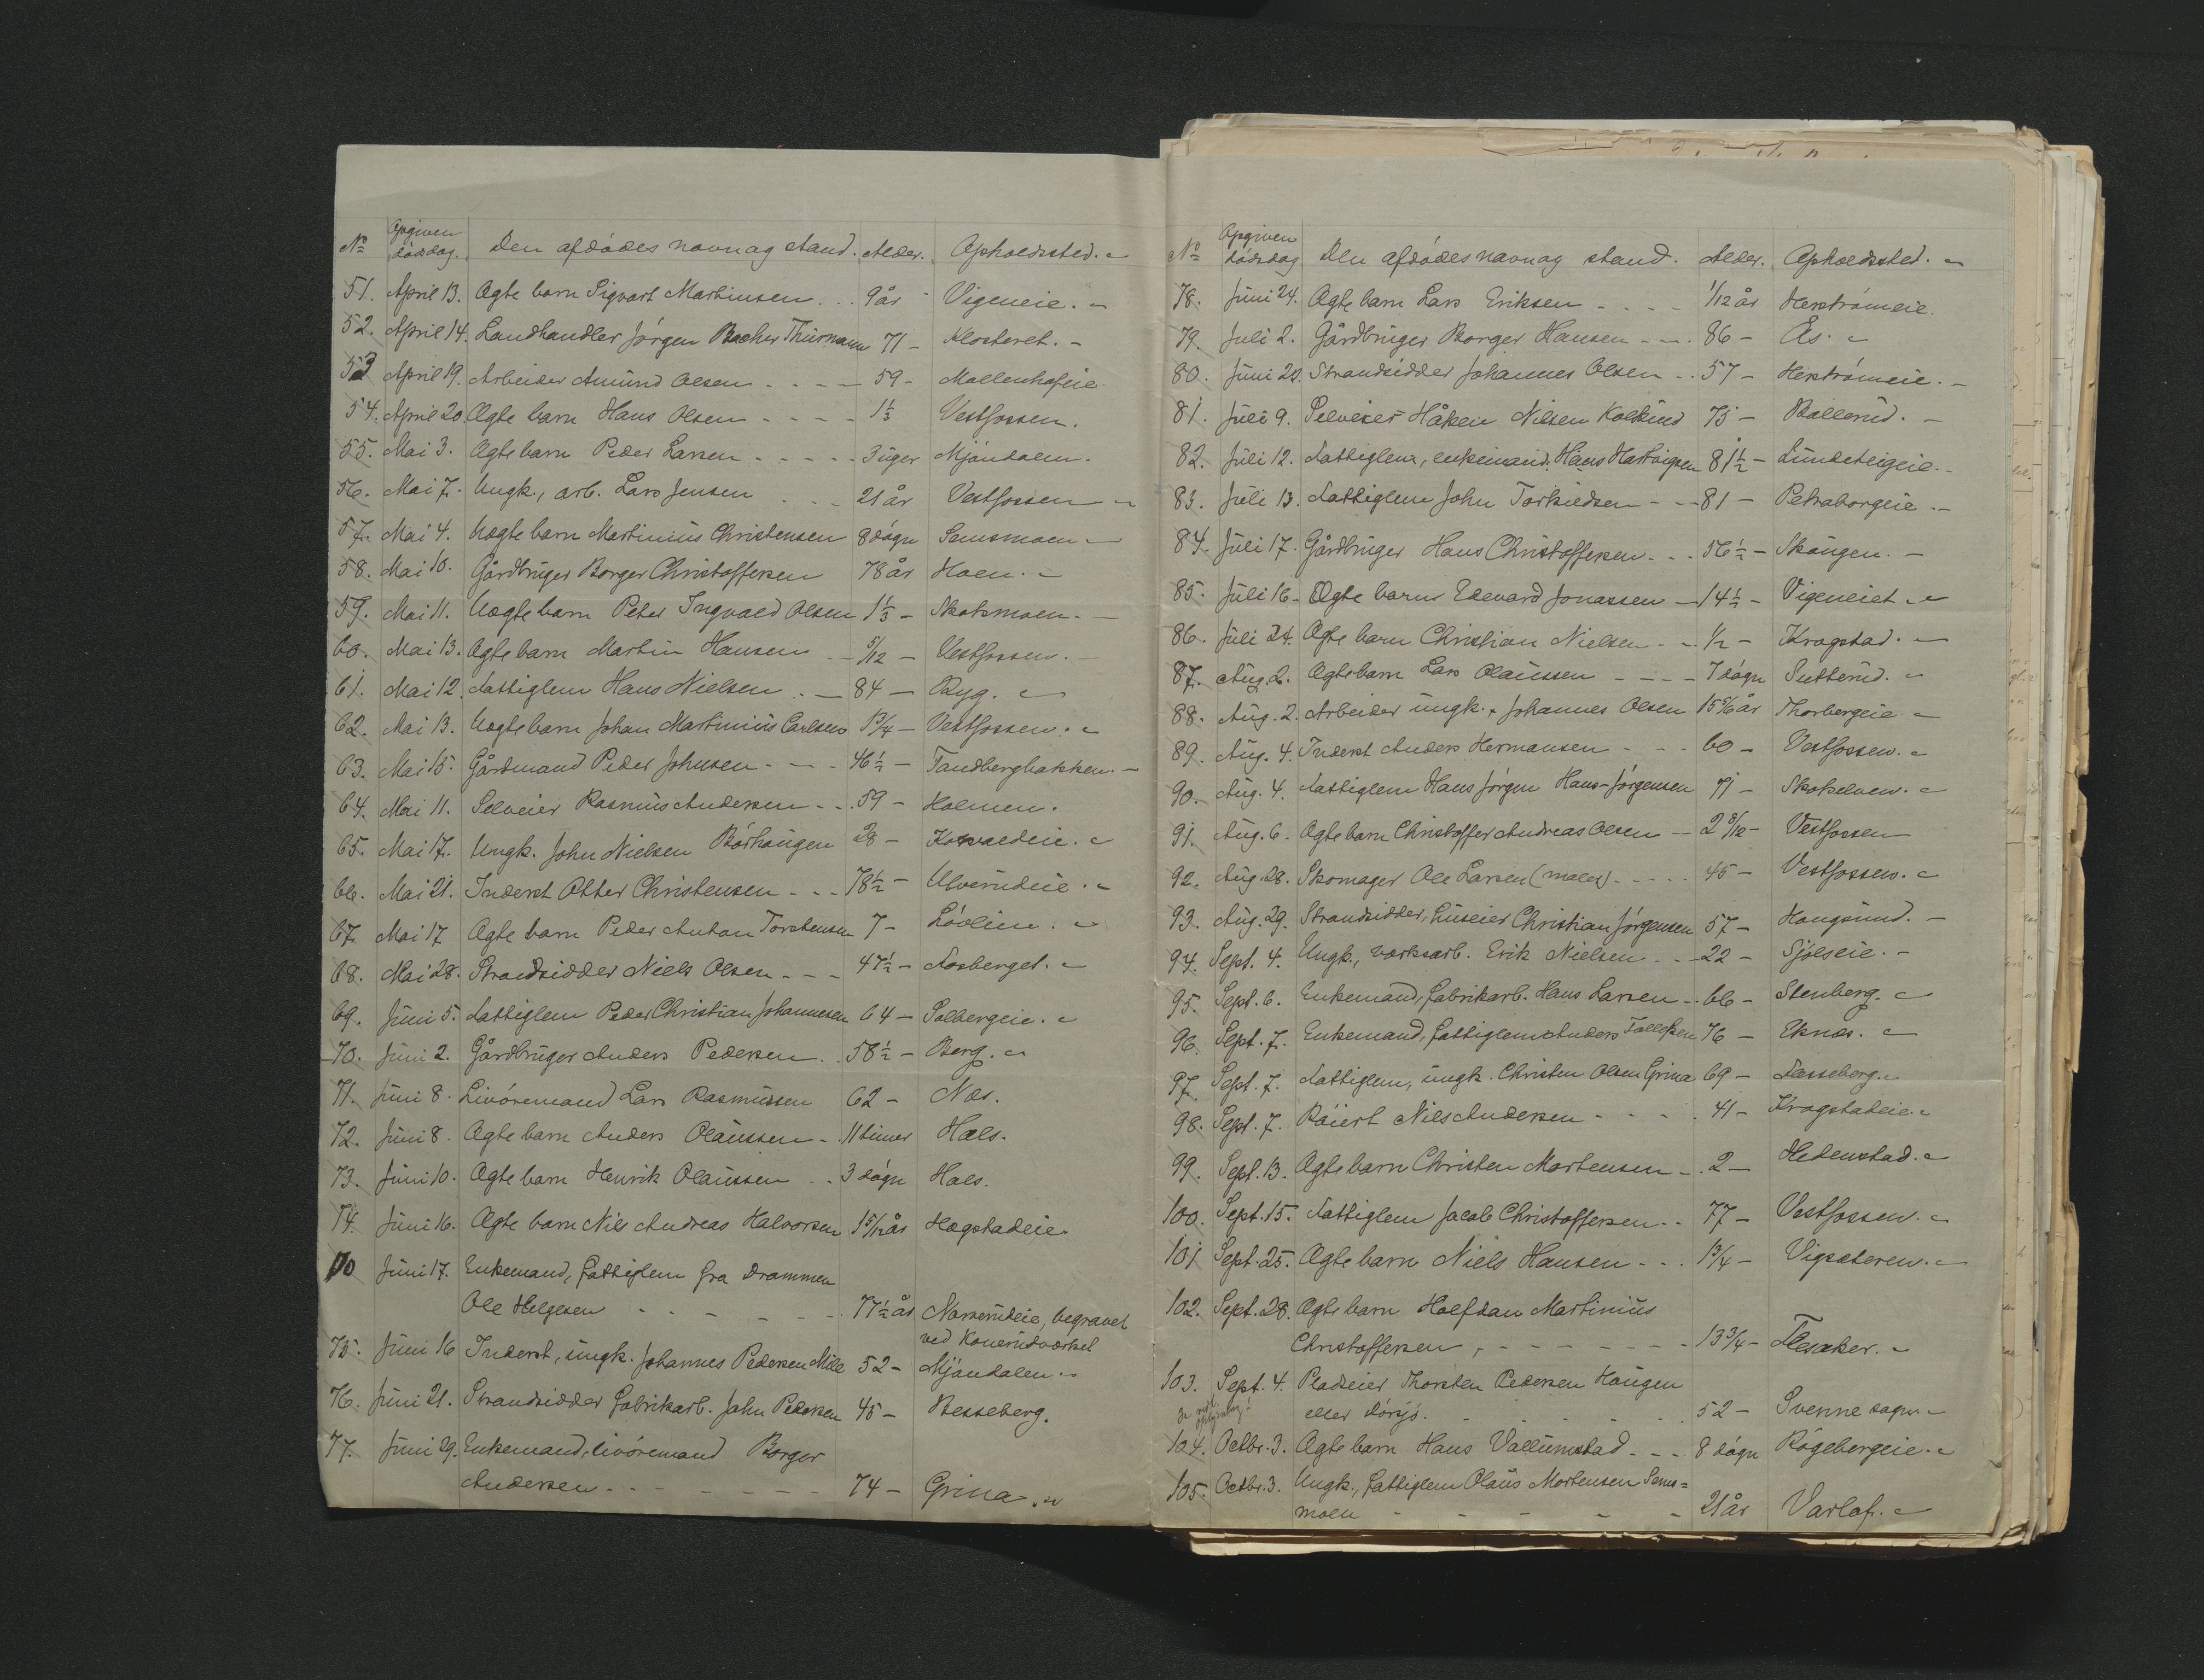 Opgiven
No dødsdag. Den afdødes navn og stand. Alder. Opholdssted.
51. April 13. Ægte barn Sigvart Martinsen 9 år Vigeneie.
52. April 14. Landhandler Jørgen Thurmann 71 - Klosteret.
53 April 19. Arbeider Amund Olsen 59 - Møllenhofeie
54. April 20 Ægte barn Hans Olsen 1 1/3 Vestfossen.
55. Mai 3. Ægte barn Peder Larsen 3 uger Mjøndalen.
56. Mai 7. Ungk., arb. Lars Jensen 21 år Vestfossen
57. Mai 4. Uægte barn Martinius Christensen 8 døgn Semsmoen
58. Mai 10. Gårdbruger Borger Christoffersen 78 år Hoen.
59. Mai 11. Uægte barn Peter Ingvald Olsen 1 1/3 - Skotsmoen.
60. Mai 13. Ægte barn Martin Hansen 5/12 - Vestfossen.
61. Mai 12. Fattiglem Hans Nielsen 84 - Ryg.
62. Mai 13. Uægte barn Johan Martinius Carlsen 1 3/4 - Vestfossen.
63. Mai 15. Gårdmand Peder Johnsen 46 1/2 - Tandbergbakken.
64. Mai 11. Selveier Rasmus Andersen 59 - Holmen.
65. Mai 17. Ungk. John Nielsen Børhaugen 28 -
66. Mai 21. Inderst Otter Christensen 78 1/2 - Ulverudeie.
67. Mai 17 Ægte barn Peder Anton Torstensen 7 - Løvlien.
68. Mai 28. Strandsidder Niels Olsen 47 1/2 - Fosberget.
69. Juni 5. Fattiglem Peder Christian Johannesen 64 - Solbergeie.
70. Juni 2. Gårdbruger Anders Pedersen 58 1/2 - Berg.
71. Juni 8. Livøremand Lars Rasmussen 62 - Næs.
72. Juni 8. Ægte barn Anders Olaussen 11 timer Hals.
73. Juni 10. Ægte barn Henrik Olaussen 3 døgn Hals.
74. Juni 16. Ægte barn Nils Andreas Halvorsen 1 5/12 år Hogstadeie
Juni 17. Enkemand, fattiglem fra Drammen
Ole Helgesen 77 1/2 år Narverudeie, begravet
ved Konerudværket
75. Juni 16 Inderst, ungk. Johannes Pedersen Mile 52 - Mjøndalen.
76. Juni 21. Strandsidder fabrikarb. John Pedersen 45 - Besseberg.
77. Juni 29. Enkemand, livøremand Borger
Andersen 74 - Grina.
Opgiven
No dødsdag Den afdødes navn og stand. Alder. Opholdssted.
78. Juni 24. Ægte barn Lars Eriksen 1/12 år Herstrømeie.
79. Juli 2. Gårdbruger Borger Hansen 86 - Ås.
80. Juni 28. Strandsidder Johannes Olsen 57 - Herstrømeie.
81. Juli 9. Selveier Håken Nilsen Kolkind 75 - Ballerud.
82. Juli 12. Fattiglem, enkemand Hans Hartvigsen 81 1/2 - Lundeteigeie.
83. Juli 13. Fattiglem John Torkildsen 81 - Petraborgeie.
84. Juli 17. Gårdbruger Hans Christoffersen 56 1/2 - Skougen.
85. Juli 16. Ægte barn Edevard Jonassen 14 1/2 - Vigeneiet.
86. Juli 24. Ægte barn Christian Nielsen 1/2 - Krogstad.
87. Aug. 2. Ægte barn Lars Olaussen 7 døgn Sutterud.
88. Aug. 2. Arbeider ungk. Johannes Olsen 15 5/6 år Thorbergeie.
89. Aug. 4. Inderst Anders Hermansen 60 - Vestfossen.
90. Aug. 4. Fattiglem Hans Jørgen Hans-Jørgensen 71 - Skotselven.
91. Aug. 6. Ægte barn Christoffer Andreas Olsen 2 8/12 - Vestfossen
92. Aug. 28. Skomager Ole Larsen (maler) 45 - Vestfossen.
93. Aug. 29. Strandsidder, huseier Christian Jørgensen 57 - Hougsund.
94. Sept. 4. Ungk., værksarb. Erik Nielsen 22 - Sjølseie.
95. Sept. 6. Enkemand, fabrikarb. Hans Larsen 66 - Stenberg.
96. Sept. 7. Enkemand, fattiglem Anders Tollefsen 76 - Eknæs.
97. Sept. 7. Fattiglem, ungk. Christen Olsen Grina 69 - Fosseberg.
98. Sept. 7. Råiert Nils Andersen 41 - Krogstadeie.
99. Sept. 13. Ægte barn Christen Mortensen 2 - Hedenstad.
100. Sept. 15. Fattiglem Jacob Christoffersen 77 - Vestfossen.
101 Sept. 25. Ægte barn Niels Hansen 1 3/4 - Vigsæteren.
102. Sept. 28. Ægte barn Halfdan Martinius
Christoffersen, 13 3/4 - Flesaker.
103. Sept. 4. Pladseier Thorsten Pedersen Haugen
eller Hørsjø. 52 - Svenne sogn
104. Octbr. 3. Ægte barn Hans Vallumstad 8 døgn Røgebergeie.
105. Octbr. 3. Ungk., fattiglem Olaus Mortensen Sems=
moen 21 år Varlo.